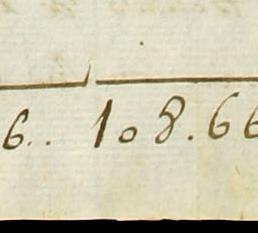 6.. 108.66